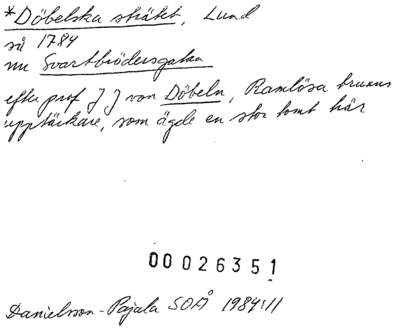 *Döbelska stråket, Lund
så 1784
nu Svartbrödersgatan
efter prof J J von Döbeln, Ramlösa brunns
upptäckare, som ägde en stor tomt här
00026351
Danielsson-Pajala SOÅ 1984:11